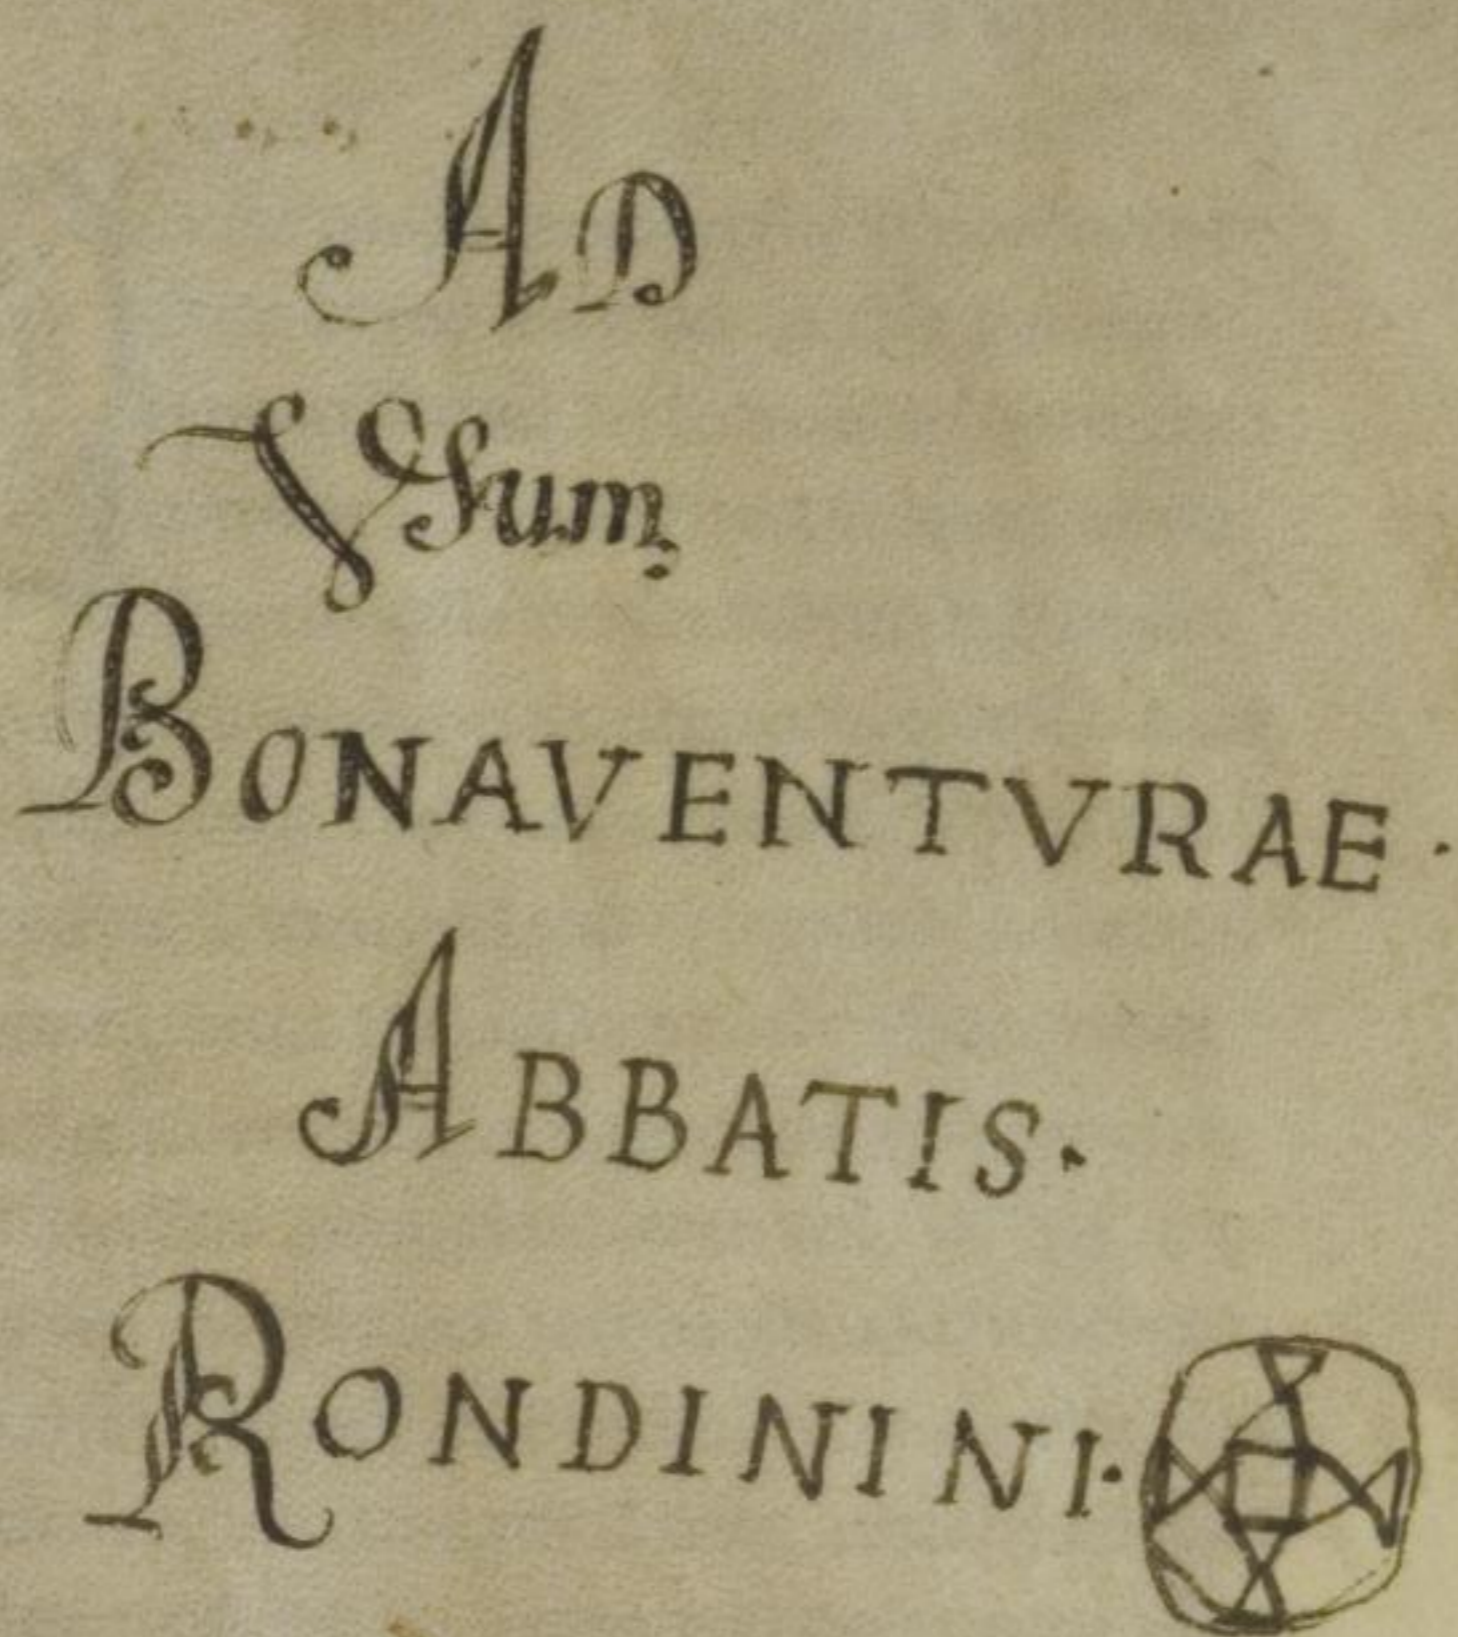 AD
VSum
BONAVENTVRAE.
ABBATIS.
RONDININI.